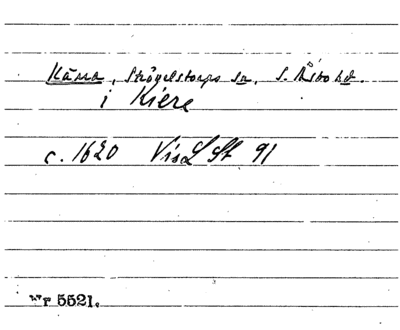 Kärra, Strövelstorps sn, S. Åsbo hd.
i Kiere
c. 1620 VisL St 91
Wr 5521.